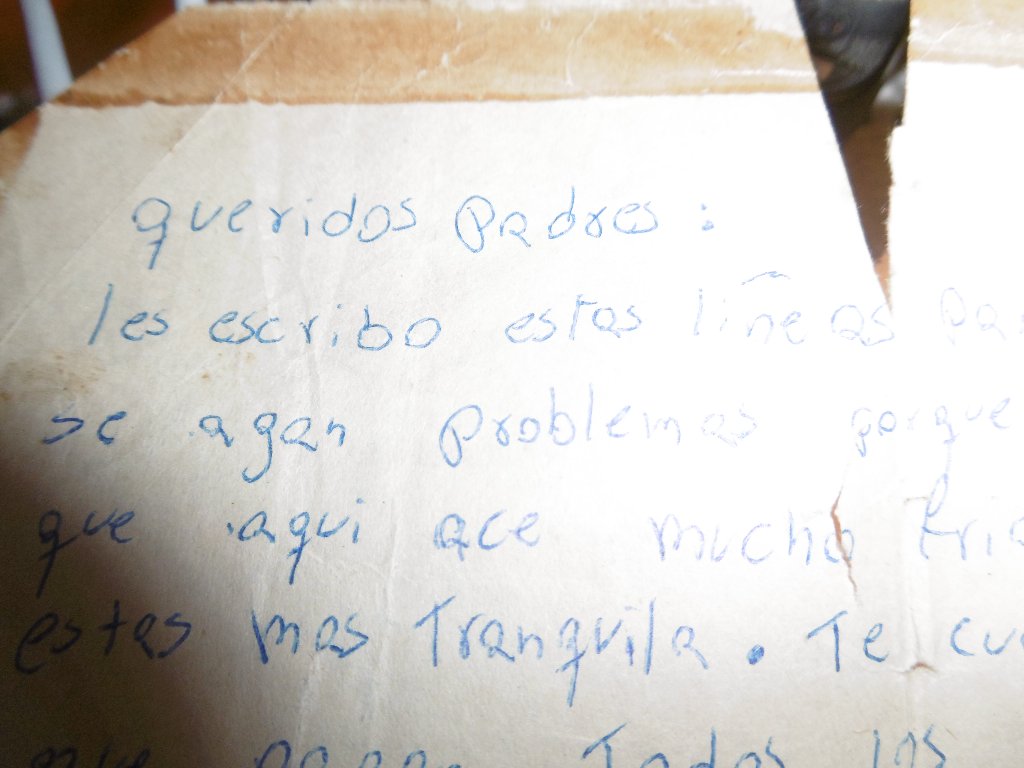 queridos Padres:
les escribo estas liñeas par
se agan problemas porque
que aqui ace mucho fric
estas mas Tranquila. Te cu
que Todos los